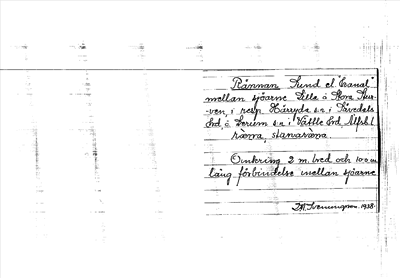 Rännan Sund el. "Canal"
mellan sjöarne Lilla o Stora Stur-
ven, i resp. Härryda s:n i Sävedals
hd, o Lerum s:n i Vättle hd, Älfsb. l
ränna, stavaränna.
Omkring 2 m. bred och 100 m
lång förbindelse mellan sjöarne
Svenungson 1938.